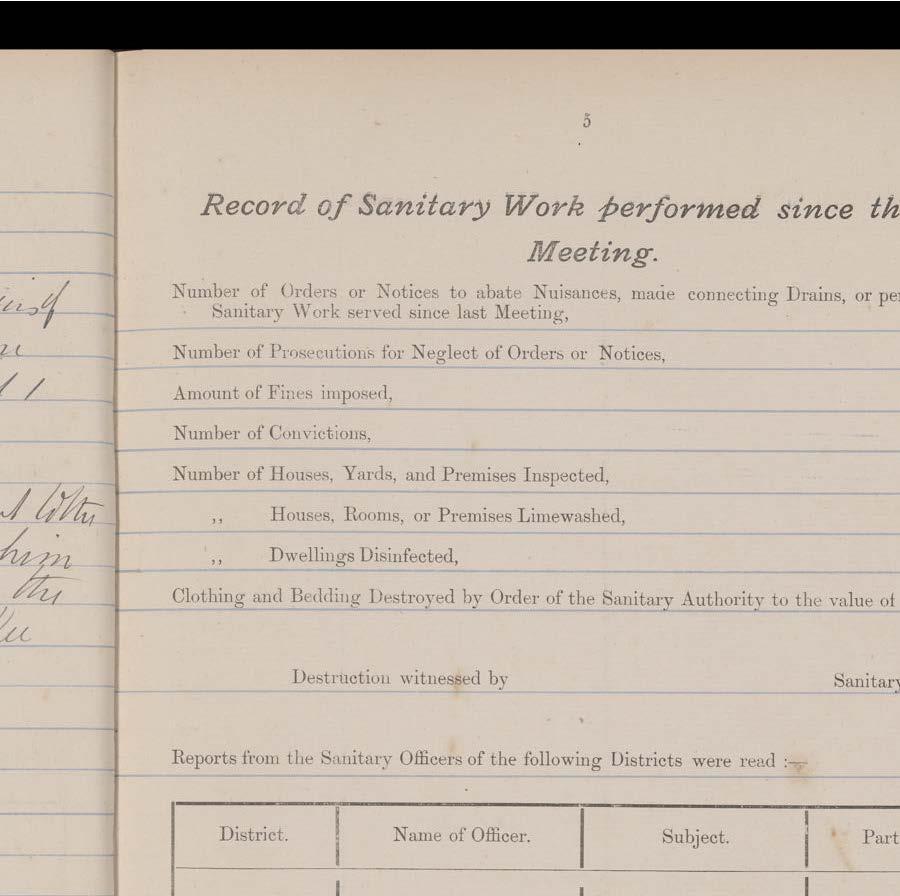 5
Record of Sanitary Work performed since th
Meeting.
Number of Orders or Notices to abate Nuisances, made connecting Drains, or per
Sanitary Work served since last Meeting,
Number of Prosecutions for Neglect of Orders or Notices,
Amount of Fines imposed,
Number of Convictions,
Number of Houses, Yards, and Premises Inspected,
,, Houses, Rooms, or Premises Limewashed,
,, Dwellings Disinfected,
Clothing and Bedding Destroyed by Order of the Sanitary Authority to the value of
Destruction witnessed by Sanitary
Reports from the Sanitary Officers of the following Districts were read :—
District. Name of Officer. Subject. Part
him
the